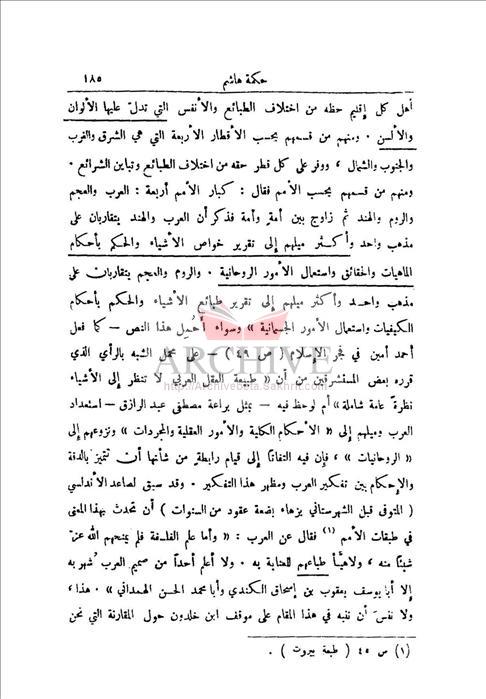 حكمة هاشم
١٨٥
أهل كل إقليم حظه من اختلاف الطبائع والأنفس التي تدلّ عليها الألوان
والألسن . ومنهم من قسمهم بحسب الأقطار الأربعة التي هي الشرق والغرب
والجنوب والشمال ، ووفر على كل قطر حقه من اختلاف الطبائع وتباين الشرائع .
ومنهم من قسمهم بحسب الأمم فقال : كبار الأمم أربعة : العرب والعجم
والروم والهند ثم زاوج بين أمة وأمة فذكر أن العرب والهند يتقاربان على
مذهب واحد وأكثر ميلهم إلى تقرير خواص الأشياء والحكم بأحكام
الماهيات والحقائق واستعمال الأمور الروحانية . والروم والعجم يتقاربان على
مذهب واحد وأكثر ميلهم إلى تقرير طبائع الأشياء والحكم بأحكام
الكيفيات واستعمال الأمور الجسمانية » وسواء أحُمِل هذا النص – كما فعل
أحمد أمين في فجر الإسلام ( ص ٤٩ ) – على محمل الشبه بالرأي الذي
قرره بعض المستشرقين من أن « طبيعة العقل العربي لا تنظر إلى الأشياء
نظرة عامة شاملة » أم لوحظ فيه – بمثل براعة مصطفى عبد الرازق – استعداد
العرب وميلهم إلى « الأحكام الكلية والأمور العقلية والمجردات » ونزوعهم إلى
« الروحانيات » ، فإن فيه التفاتًا إلى قيام رابطة من شأنها أن تتميز بالدقة
والإحكام بين تفكير العرب ومظهر هذا التفكير . وقد سبق لصاعد الأندلسي
( المتوفى قبل الشهرستاني بزهاء بضعة عقود من السنوات ) أن تحدث بهذا المعنى
في طبقات الأمم (١) فقال عن العرب : « وأما علم الفلسفة فلم يمنحهم الله عزّ
شيئًا منه ، ولا هيّأ طباعهم للعناية به . ولا أعلم أحداً من صميم العرب شهر به
إلا أبا يوسف يعقوب بن إسحاق الكندي وأبا محمد الحسن الهمداني » . هذا ،
ولا نفسَ أن ننبه في هذا المقام على موقف ابن خلدون حول المقارنة التي نحن
(١) ص ٤٥ ( طبعة بيروت ) .
ARCHIVE
http://Archivebeta.Sakhrit.com